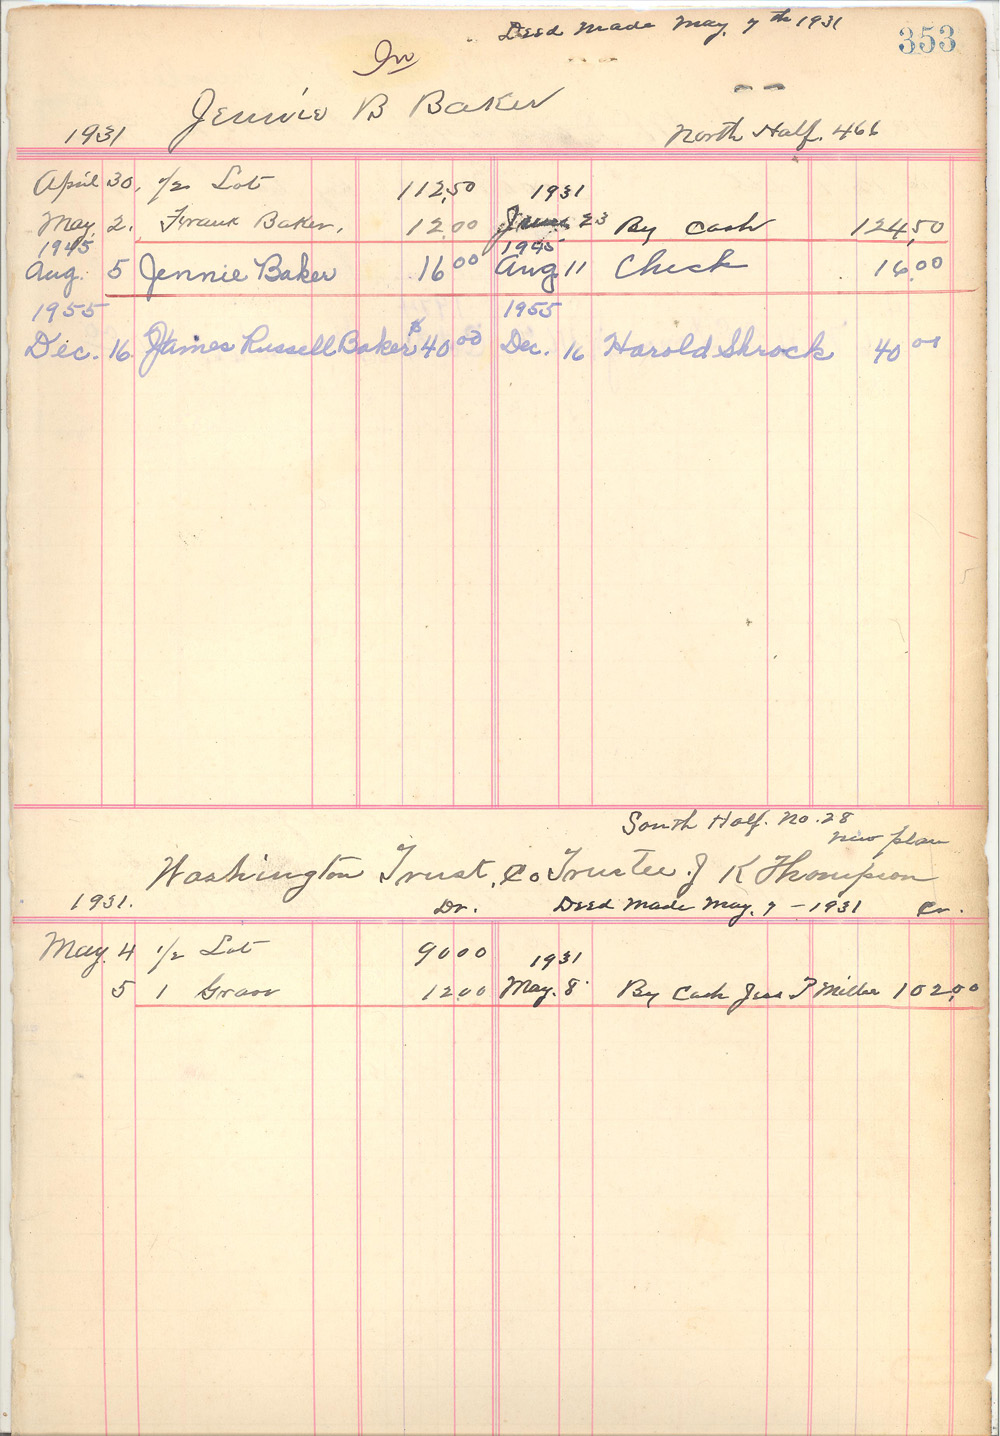 Deed Made May, 7th 1931
353
In
Jennie B Baker
1931 North Half. 466
April 30, 1/2 Lot 112,50 1931
May, 2. Frank Baker. 12.00 June 23 By Cash 124,50
1945 1945
Aug. 5 Jennie Baker 16 00 Aug 11 Check 16.00
1955 1955
Dec. 16. James Russell Baker $40 00 Dec. 16 Harold Shrock 40 00
South Half. No. 28
new plan
Washington Trust, Co Trustee J K Thompson
1931. Dr. Deed Made May, 7 - 1931 Cr.
May. 4 1/2 Lot 90 00 1931
5 1 Grave 12 00 May. 8 By Cash Jess P Miller 102,00